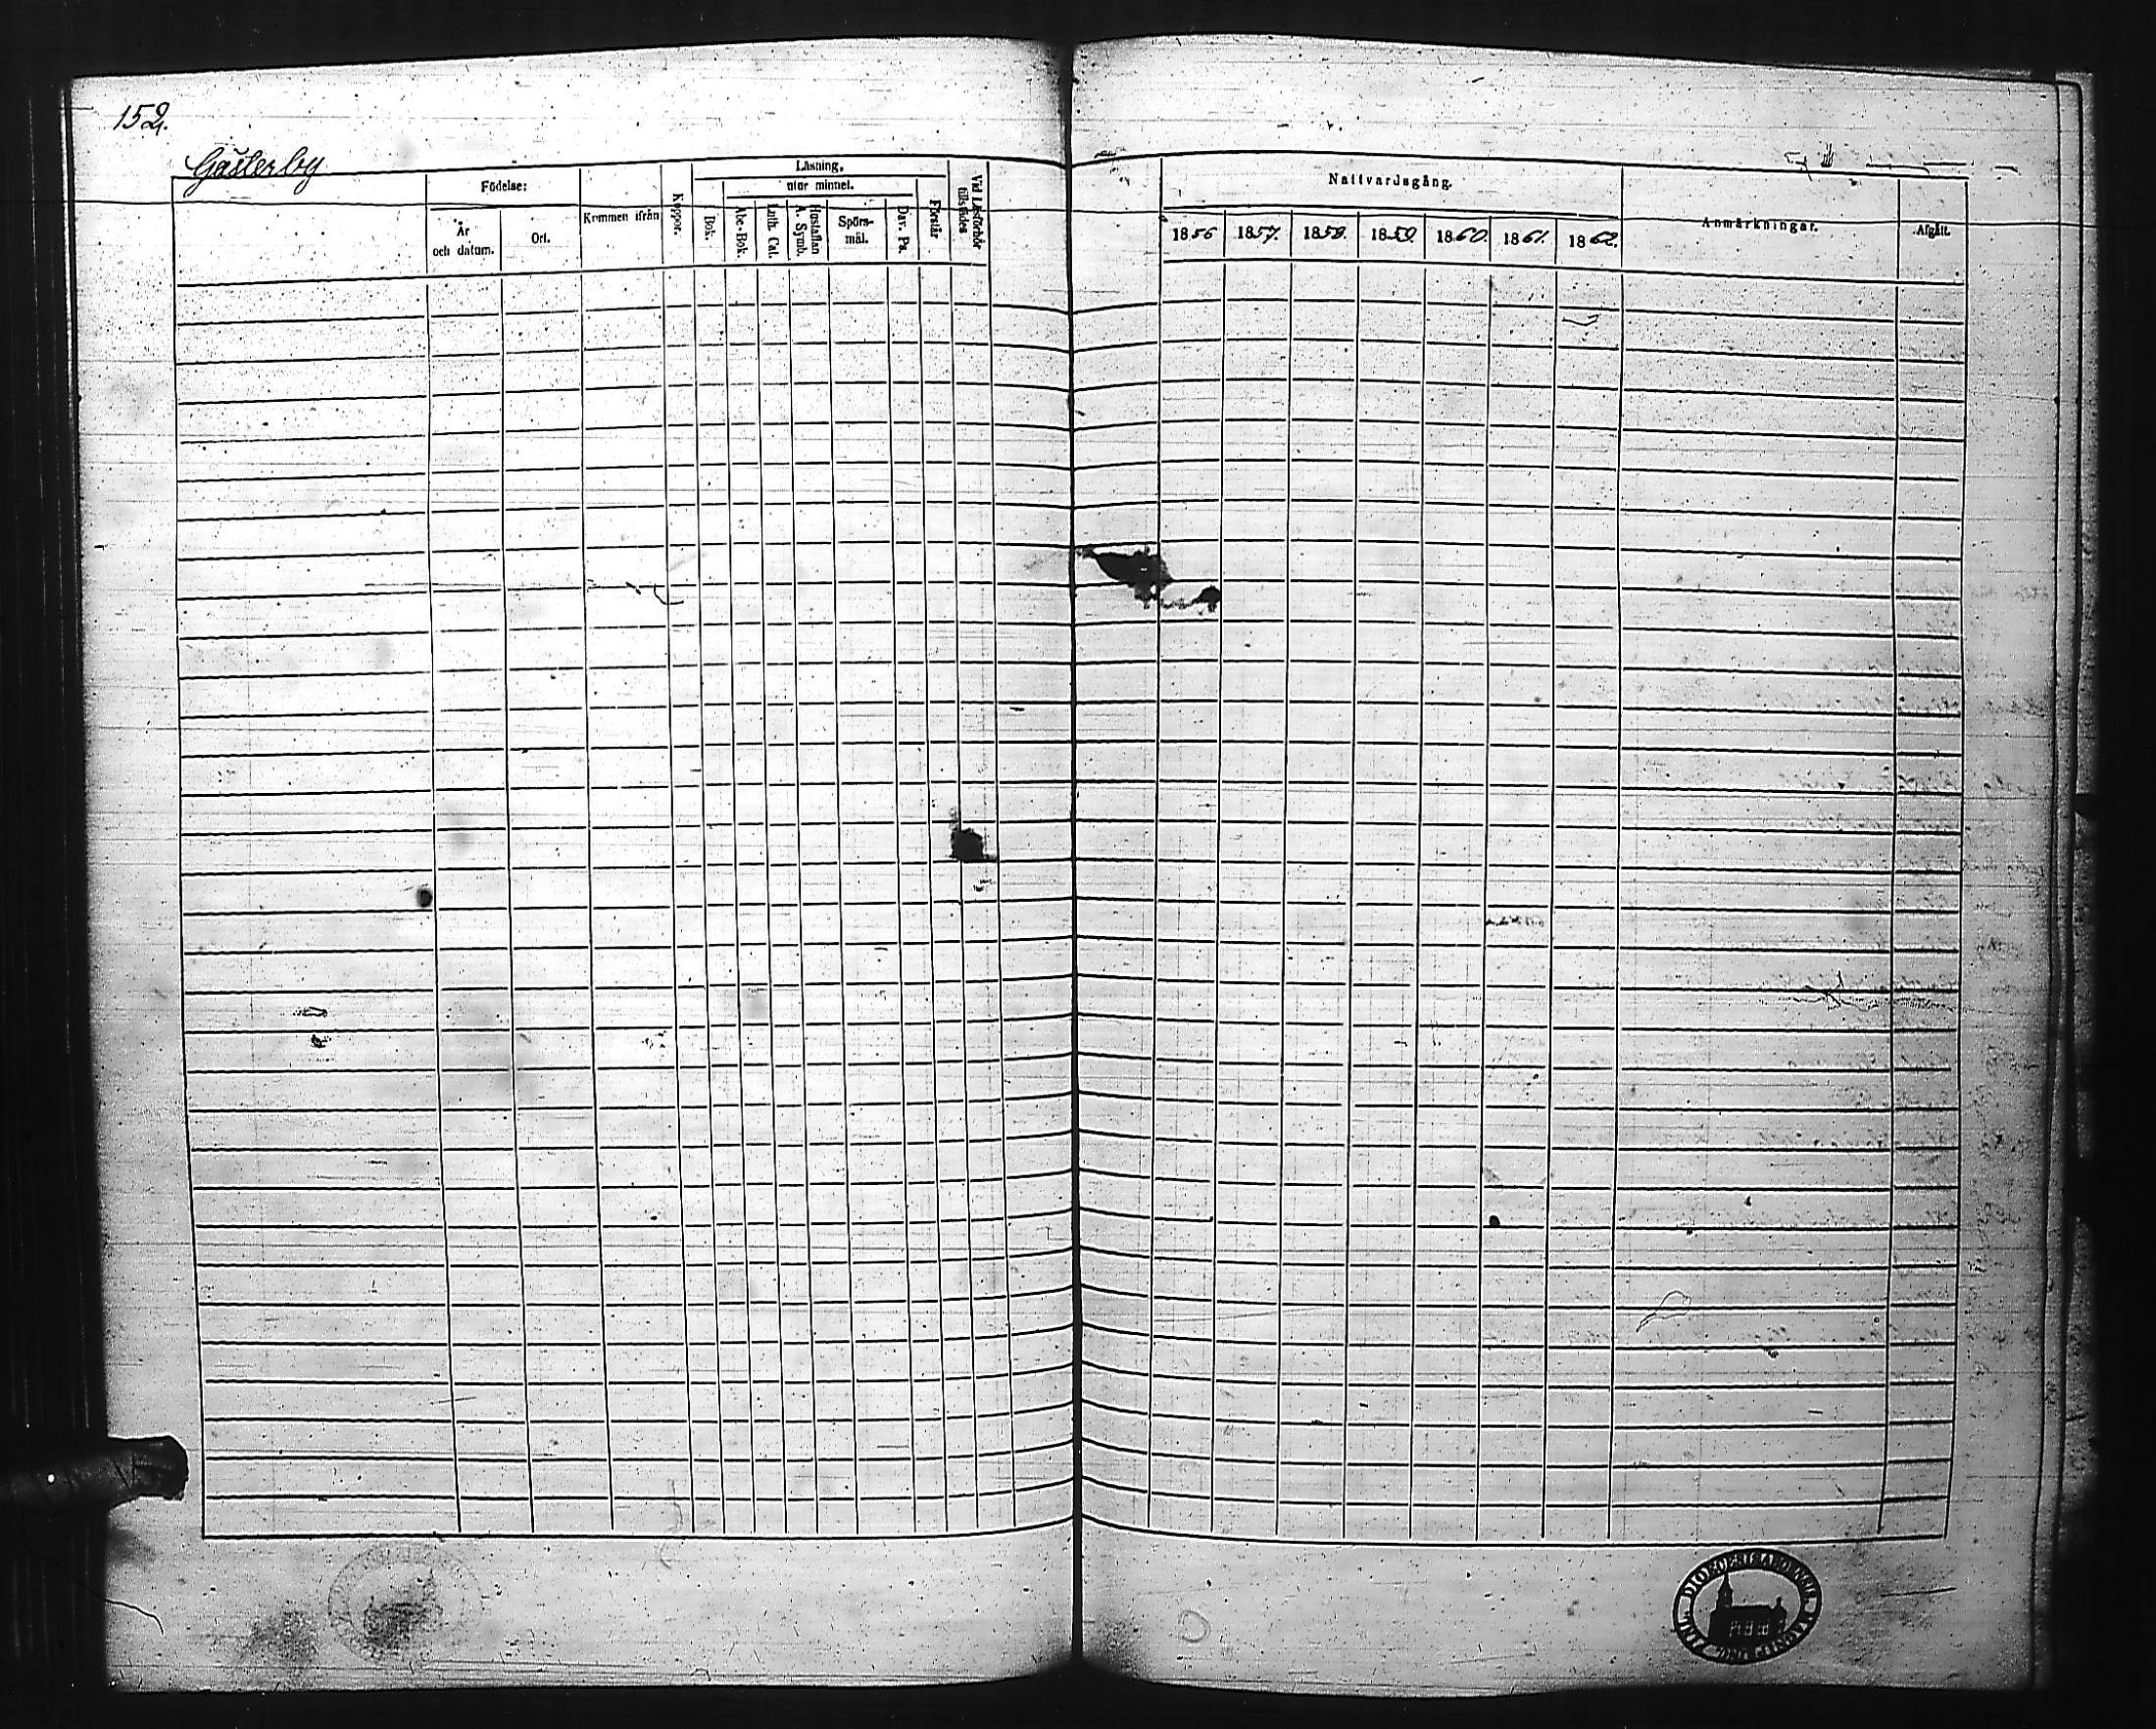 152.
Gästerby
Födelse:
År
och datum.
Ort.
Kommen ifrån
Koppor.
Läsning,
utur minnet.
Bok.
Abc-Bok.
Luth. Cat.
Hustaflan
A. Symb.
Spörs-
mål.
Dav. Ps.
Förstår
Vid Läsförhör
tillstädes
Nattvardsgång.
1856
1857.
1858.
1859.
1860.
1861.
1862.
Anmärkningar.
Afgått.